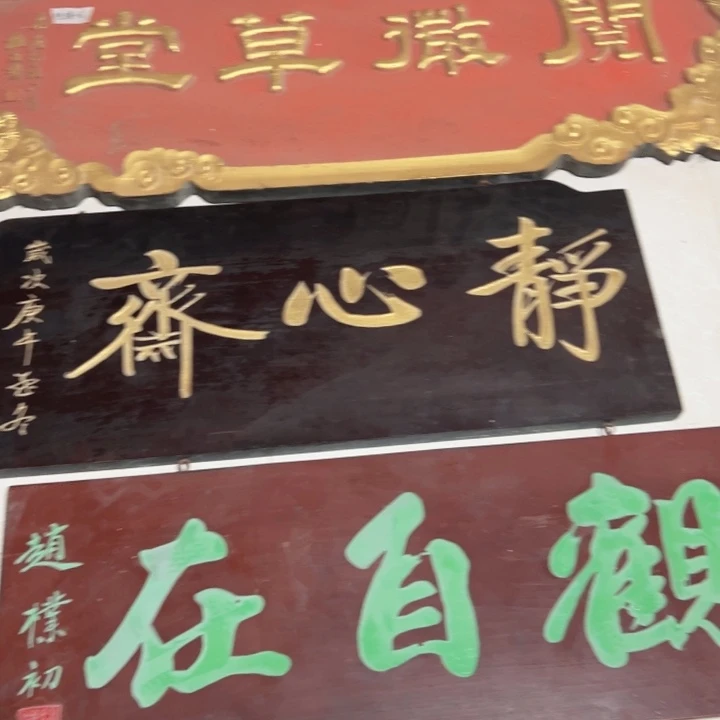 閱微草堂
靜心齋
歲次庚午孟冬
觀自在
趙樸初